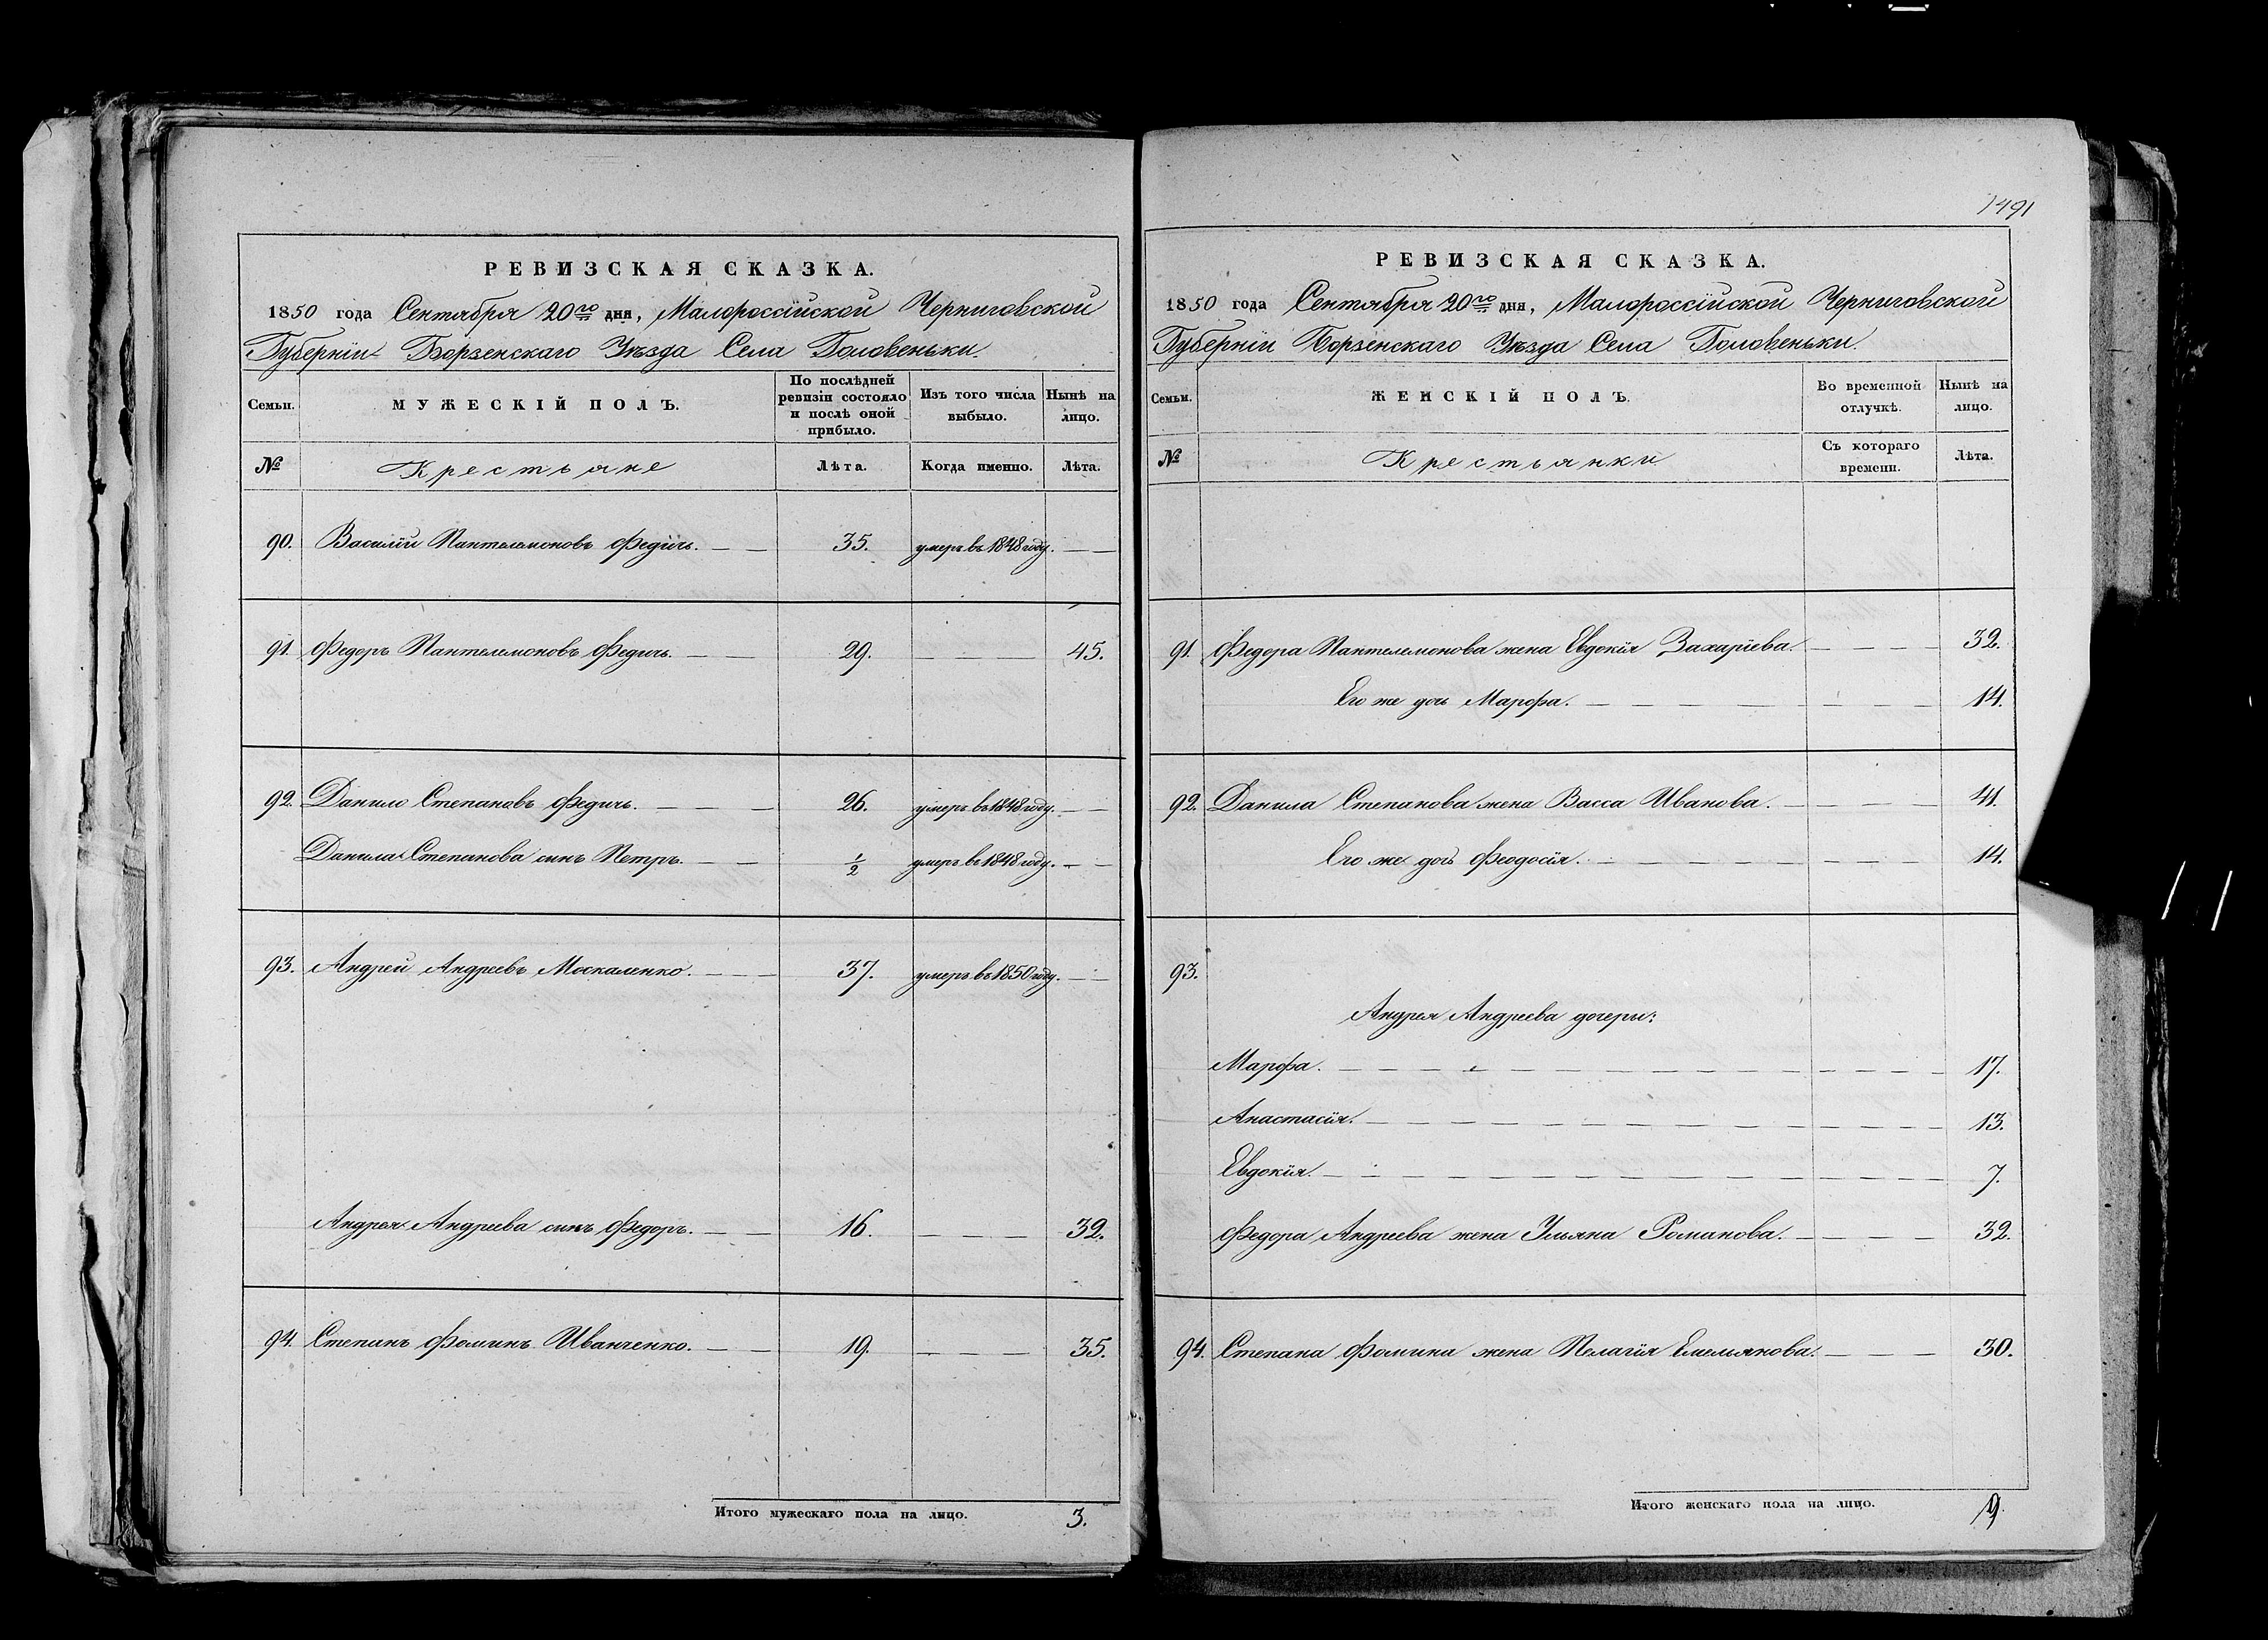 РЕВИЗСКАЯ СКАЗКА.
1850 года Сентября 20го дня, Малороссійской Черниговской
Губерніи Борзенскаго Уѣзда Села Головеньки.
Семьи. МУЖЕСКІЙ ПОЛЪ. По послѣдней ревизіи состояло и послѣ оной прибыло. Изъ того числа выбыло. Нынѣ на лицо.
№ Крестьяне Лѣта. Когда именно. Лѣта.
90. Василій Пантелемоновъ Федичь. 35. умеръ въ 1848 году.
91. Федоръ Пантелемоновъ Федичь. 29. 45.
92. Данило Степановъ Федичь. 26. умеръ въ 1848 году.
Данила Степанова сынъ Петръ. 1/2 умеръ въ 1848 году.
93. Андрей Андреевъ Москаленко. 37. умеръ въ 1850 году.
Андрея Андреева сынъ Федоръ. 16. 32.
94. Степанъ Фоминъ Иванченко. 19. 35.
Итого мужескаго пола на лицо. 3.
1491
РЕВИЗСКАЯ СКАЗКА.
1850 года Сентября 20го дня, Малороссійской Черниговской
Губерніи Борзенскаго Уѣзда Села Головеньки.
Семьи. ЖЕНСКІЙ ПОЛЪ. Во временной отлучкѣ. Нынѣ на лицо.
№ Крестьянки Съ котораго времени. Лѣта.
91. Федора Пантелемонова жена Евдокія Захаріева. 32.
Его же дочь Марфа. 14.
92. Данила Степанова жена Васса Иванова. 41.
Его же дочь Феодосія. 14.
93.
Андрея Андреева дочери:
Марфа. 17.
Анастасія. 13.
Евдокія. 7.
Федора Андреева жена Ульяна Романова. 32.
94. Степана Фомина жена Пелагія Емельянова. 30.
Итого женскаго пола на лицо. 9.